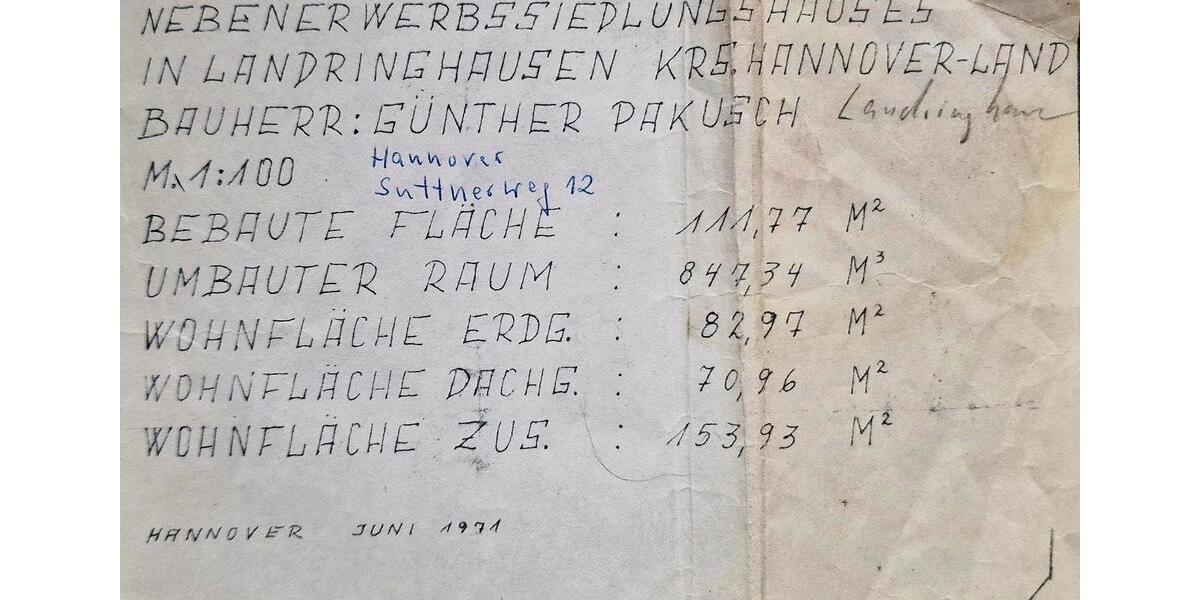 NEBENERWERBSSIEDLUNGSHAUSES
IN LANDRINGHAUSEN KRS. HANNOVER-LAND
BAUHERR: GÜNTHER PAKUSCH Landringhausen
M. 1:100 Hannover
Suttnerweg 12
BEBAUTE FLÄCHE : 111,77 M²
UMBAUTER RAUM : 847,34 M³
WOHNFLÄCHE ERDG. : 82,97 M²
WOHNFLÄCHE DACHG. : 70,96 M²
WOHNFLÄCHE ZUS. : 153,93 M²
HANNOVER JUNI 1971